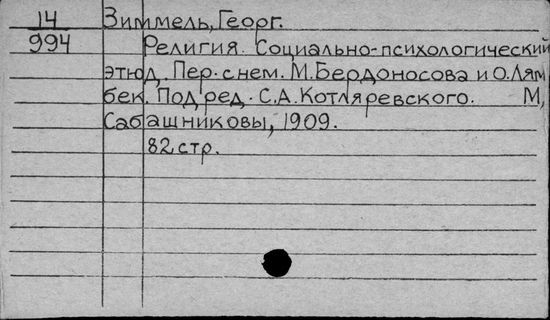 14 Зиммель, Георг.
994 Религия. Социально-психологический
этюд. Пер. с нем. М. Бердоносова и О. Лям
бек. Под ред. С.А. Котляревского. М,
Сабашниковы, 1909.
82 стр.